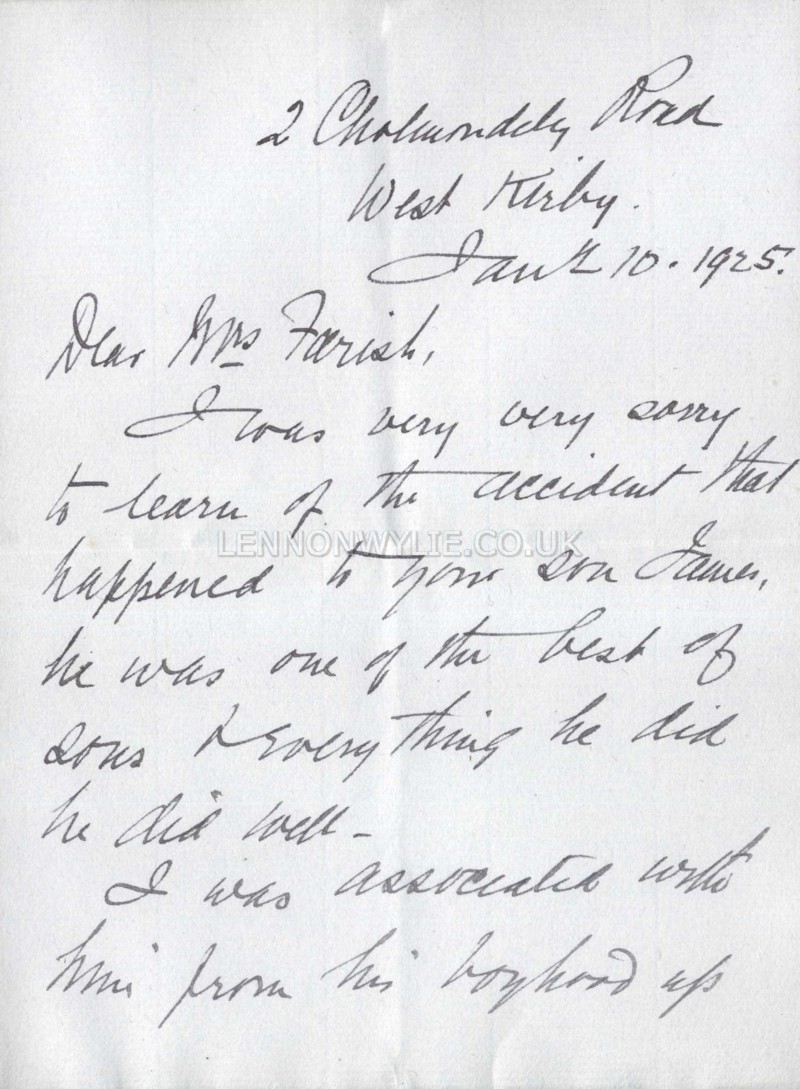 2 Cholmondely Road
West Kirby.
Jany 10. 1925.
Dear Mrs Farish,
I was very very sorry
to learn of the accident that
LENNONWYLIE.CO.UK
happened to your son James,
he was one of the best of
sons & everything he did
he did well -
I was associated with
him from his boyhood up